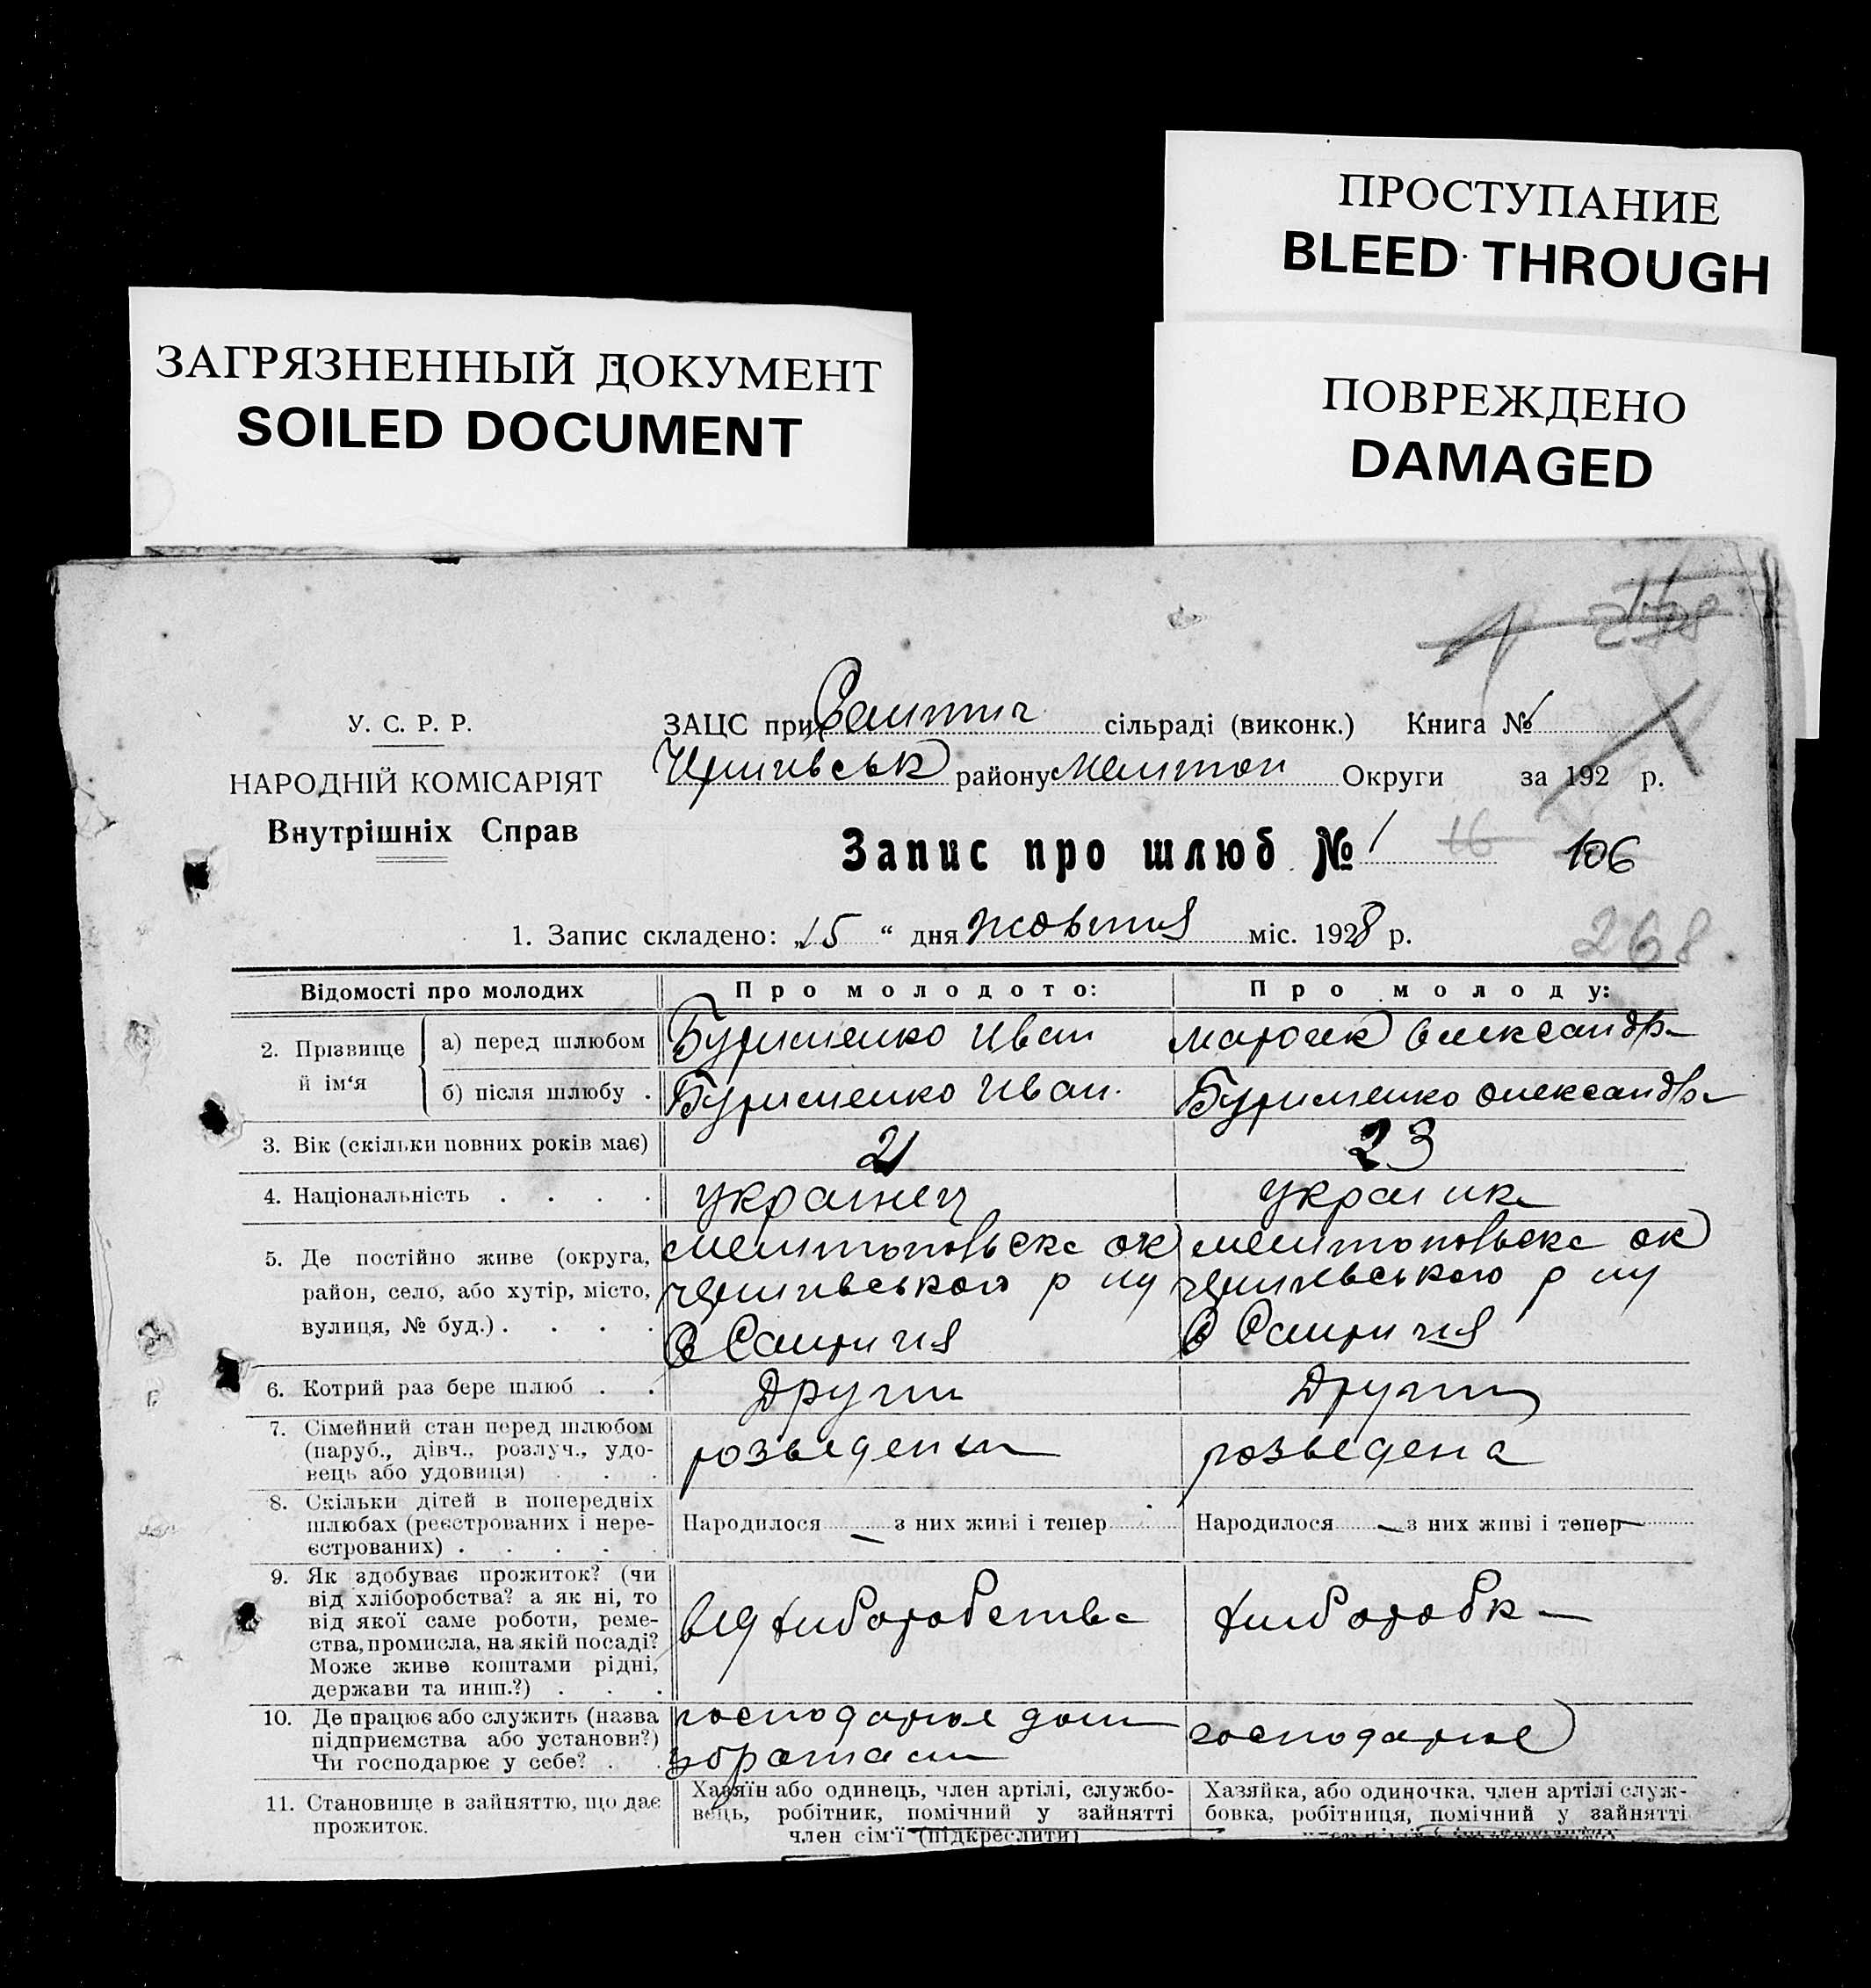 ПРОСТУПАНИЕ
BLEED THROUGH
ЗАГРЯЗНЕННЫЙ ДОКУМЕНТ
SOILED DOCUMENT
ПОВРЕЖДЕНО
DAMAGED
У. С. Р. Р.
НАРОДНІЙ КОМІСАРІЯТ
Внутрішніх Справ
ЗАЦС при сільраді (виконк.) Книга № 1
району Округи за 192 р.
Запис про шлюб № 1 16 106
1. Запис складено: „15 “ дня жовтня міс. 1928 р.
268
Відомості про молодих
Про молодого:
Про молоду:
2. Прізвище й ім‘я
а) перед шлюбом
Іван
Олександра
б) після шлюбу .
Іван.
Олександра
3. Вік (скільки повних років має)
21
23
4. Національність . . . .
українец
украінка
5. Де постійно живе (округа,
район, село, або хутір, місто,
вулиця, № буд.) . . . .
ок
р ну
С
ок
р ну
С
6. Котрий раз бере шлюб . .
Други
Други
7. Сімейний стан перед шлюбом
(паруб., дівч., розлуч., удо-
вець або удовиця) . . .
розведени
розведена
8. Скільки дітей в попередніх
шлюбах (реєстрованих і нере-
єстрованих) . . . . .
Народилося — з них живі і тепер
Народилося — з них живі і тепер —
9. Як здобуває прожиток? (чи
від хліборобства? а як ні, то
від якої саме роботи, реме-
ства, промисла, на якій посаді?
Може живе коштами рідні,
держави та инш.?) . . .
від хліборобства
хліборобка
10. Де працює або служить (назва
підприємства або установи?)
Чи господарює у себе? . .
господарює
з братами
господарює
11. Становище в зайняттю, що дає
прожиток.
Хазяїн або одинець, член артілі, службо-
вець, робітник, помічний у зайнятті
член сім‘ї (підкреслити)
Хазяйка, або одиночка, член артілі служ-
бовка, робітниця, помічний у зайнятті